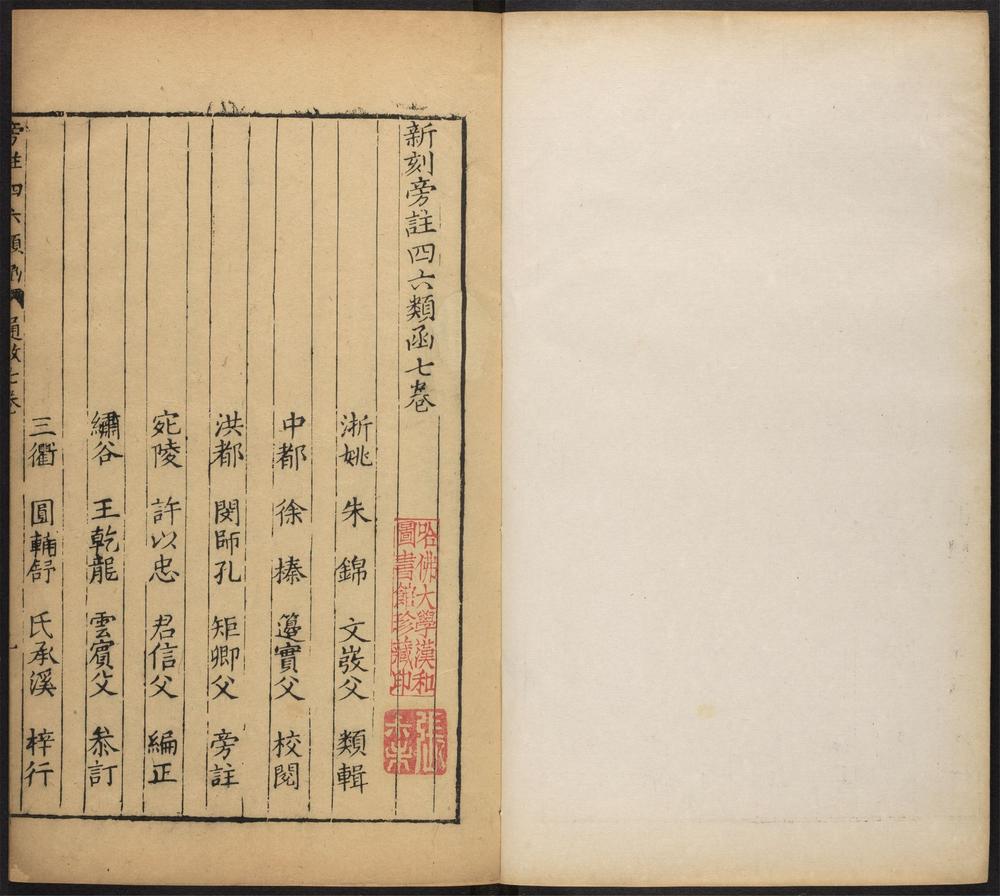 新刻旁註四六類函七卷
哈佛大學漢和
圖書館珍藏印
浙姚 朱錦 文弢父 類輯
中都 徐榛 籩實父 校閱
洪都 閔師孔 矩卿父 旁註
宛陵 許以忠 君信父 編正
繡谷 王乾龍 雲賓父 叅訂
三衢 圓輔舒 氏承溪 梓行
旁註四六類函 通啟七卷